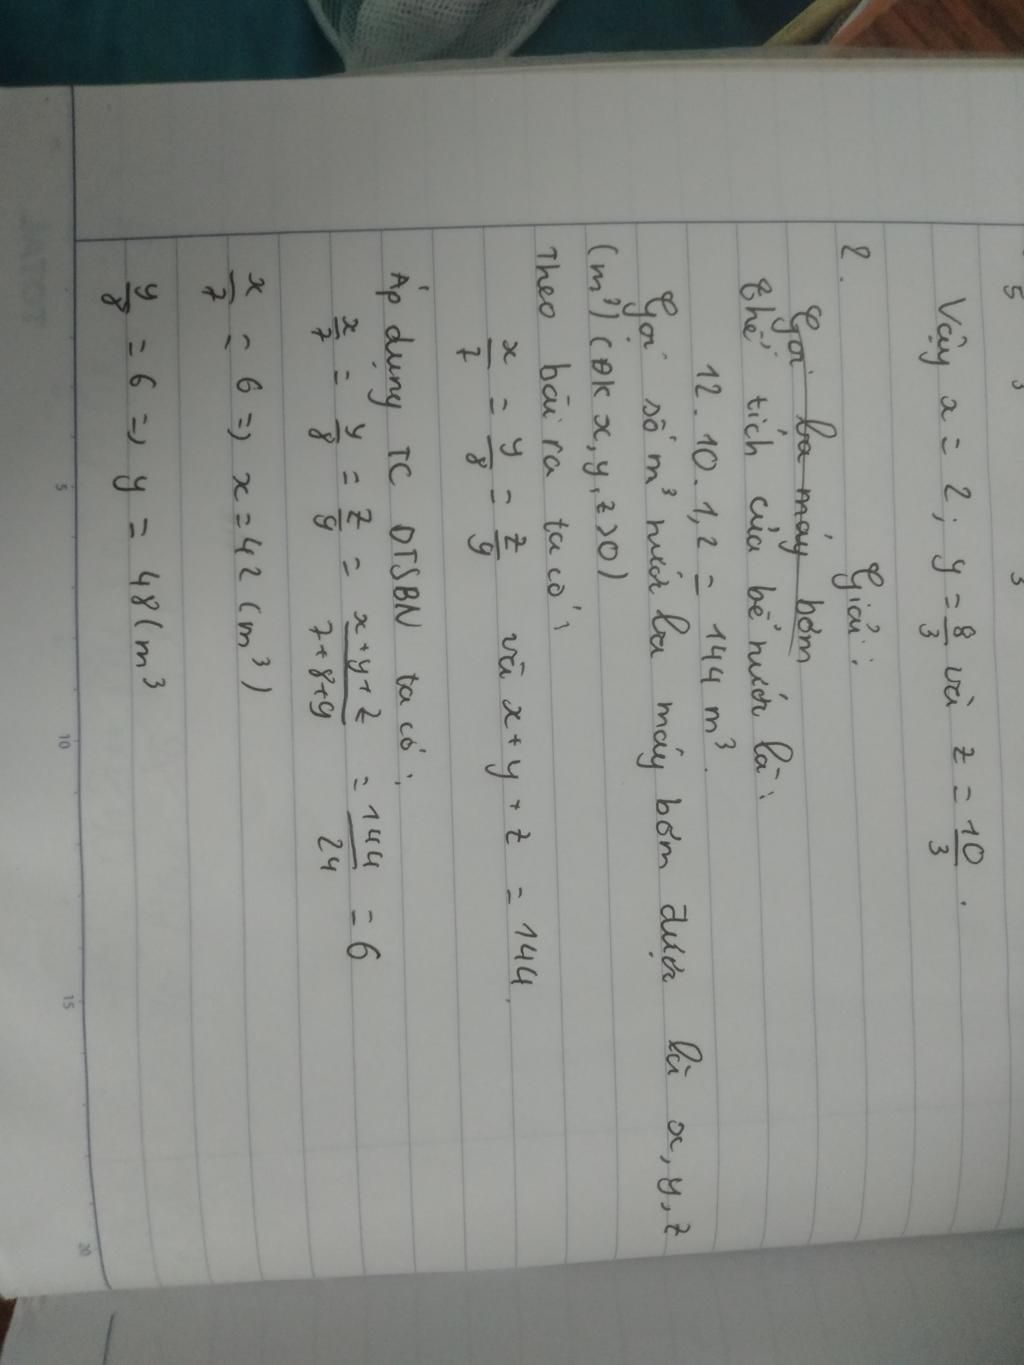 5 3 3
Vậy x = 2; y = 8/3 và z = 10/3.
8. Giải:
Gọi ba máy bơm
Thể tích của bể nước là:
12.10.1,2 = 144 m³.
Gọi số m³ nước ba máy bơm được là x, y, z
(m³) (ĐK x, y, z > 0)
Theo bài ra ta có:
x/7 = y/8 = z/9 và x + y + z = 144.
Áp dụng TC DTSBN ta có:
x/7 = y/8 = z/9 = x+y+z/7+8+9 = 144/24 = 6
x/7 = 6 => x = 42 (m³)
y/8 = 6 => y = 48 (m³
5 10 15 20